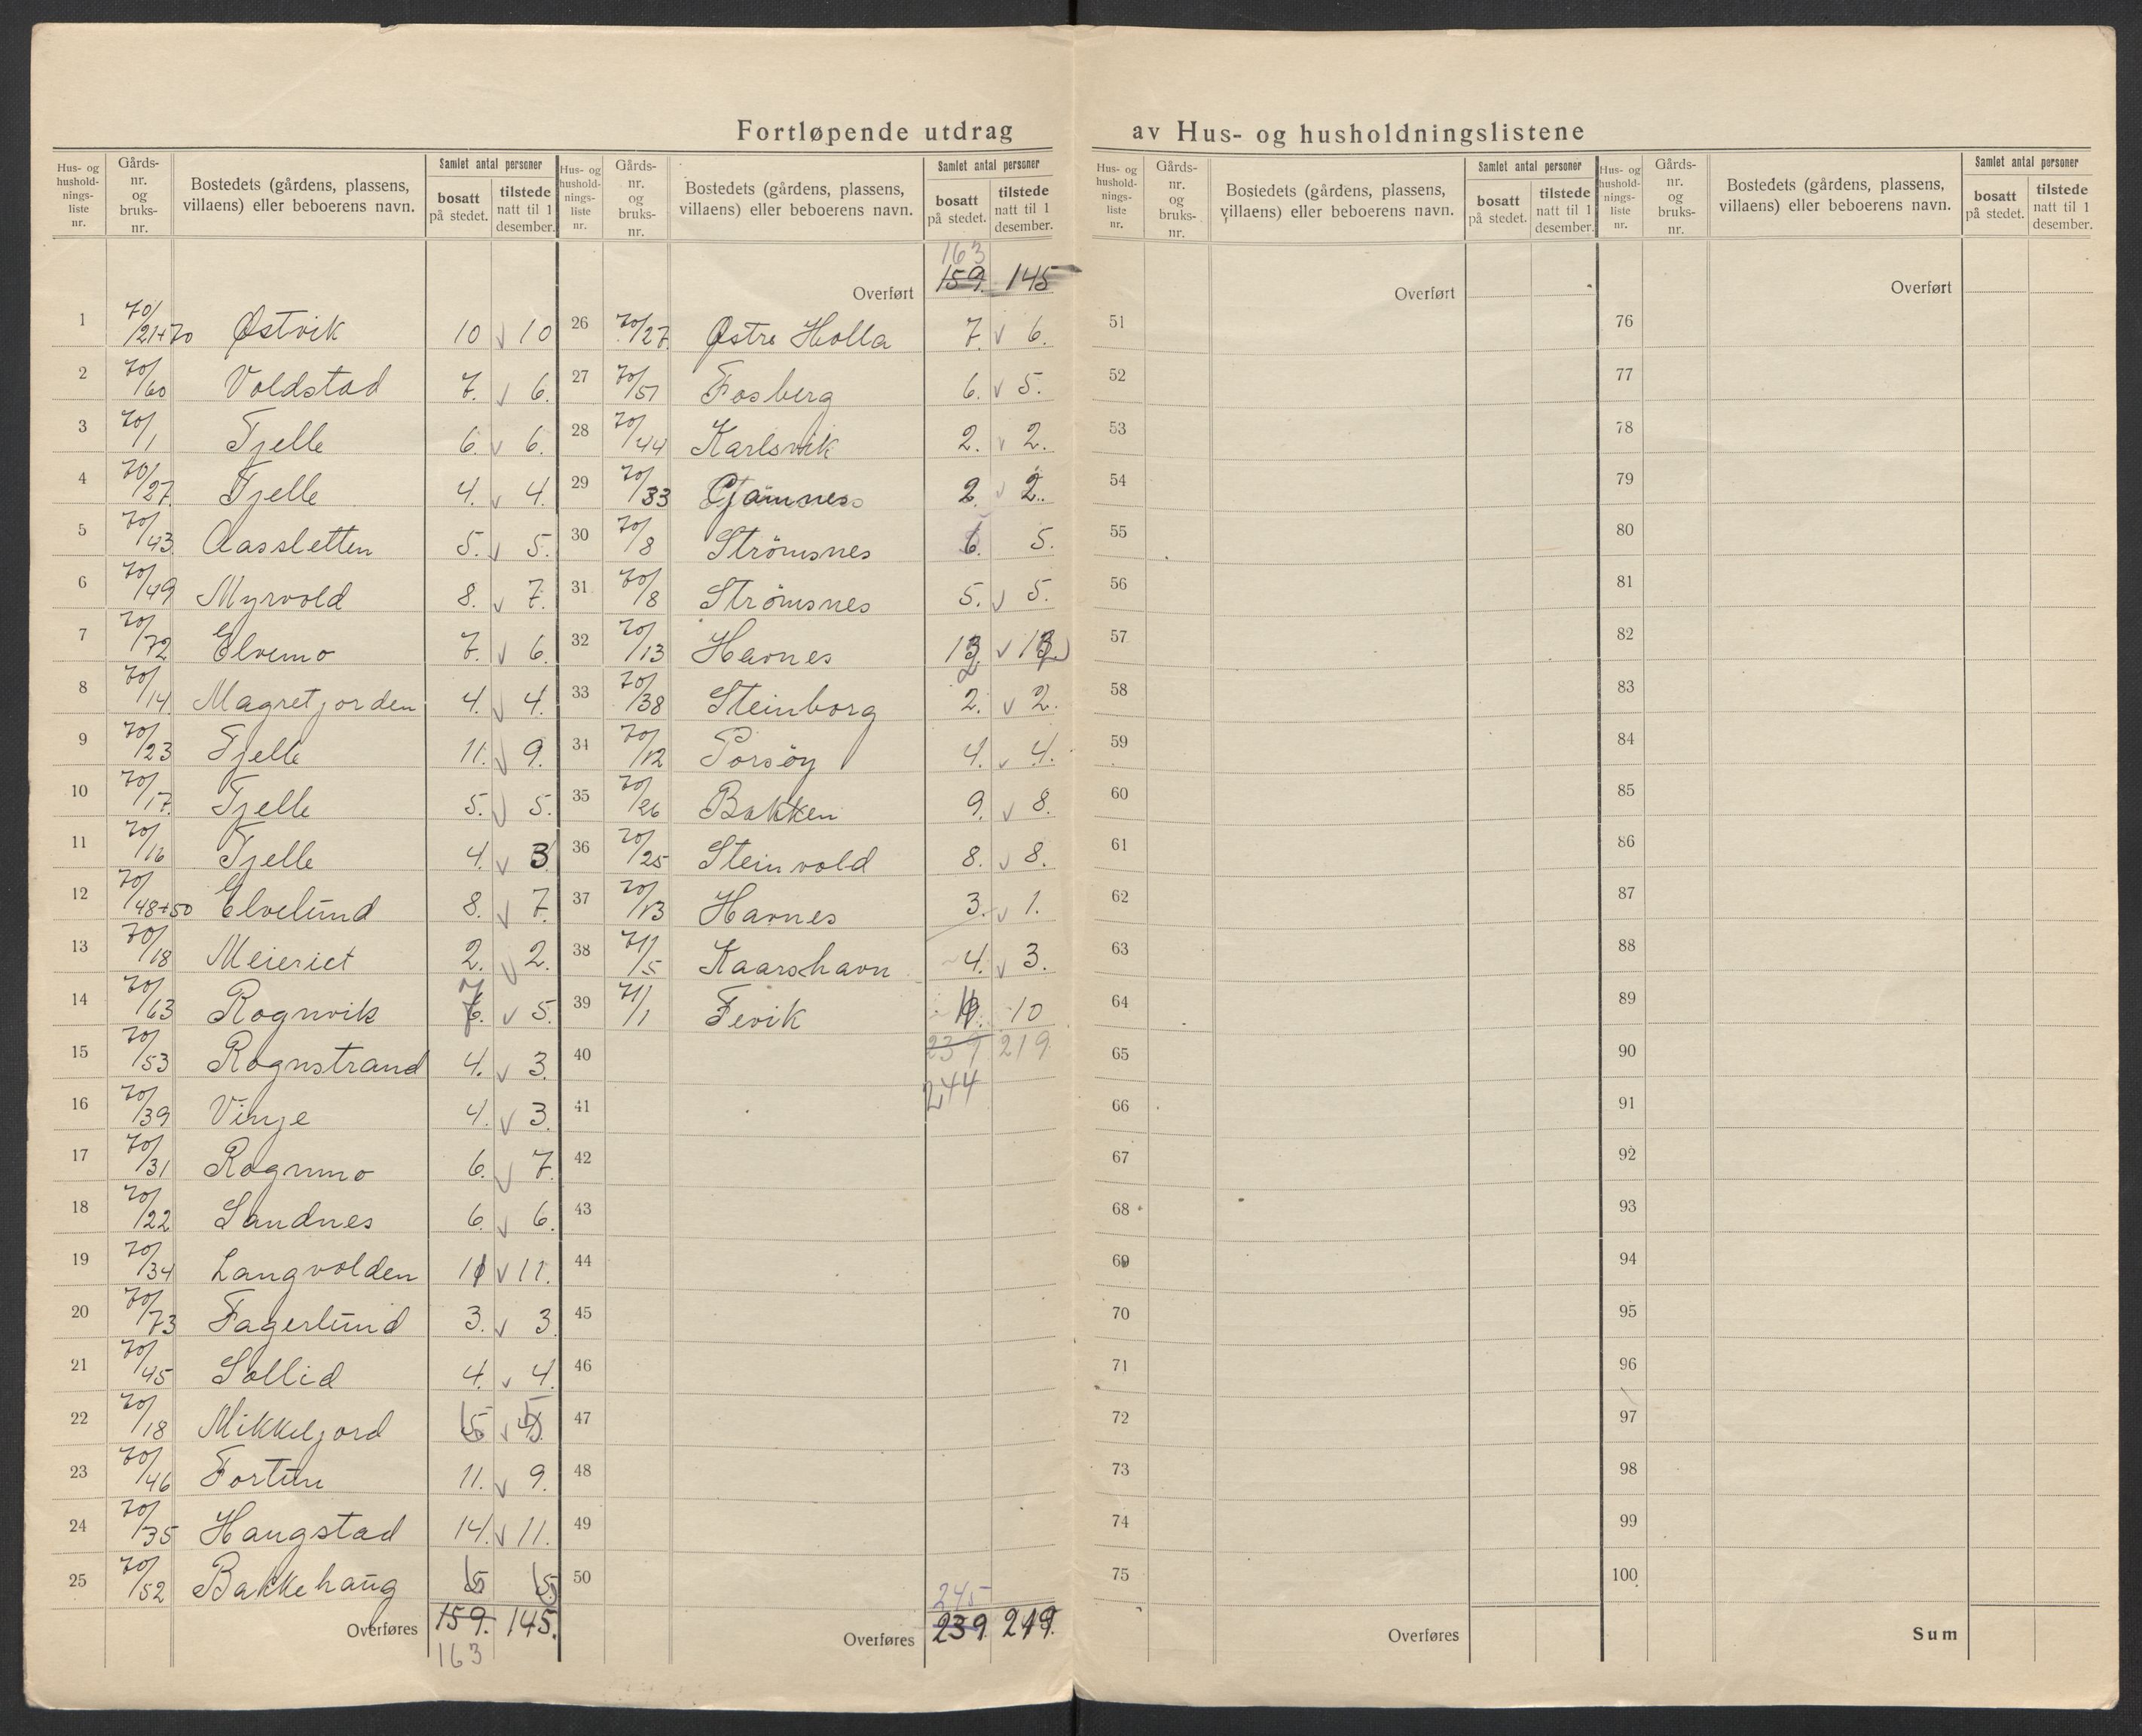 Fortløpende utdrag av Hus- og husholdningslistene
Hus- og hushold-nings-liste nr. Gårds-nr. og bruks-nr. Bostedets (gårdens, plassens, villaens) eller beboerens navn. Samlet antal personer bosatt på stedet. tilstede natt til 1 desember.
1 70/21+70 Østvik 10 v 10
2 70/60 Voldstad 7. v 6.
3 70/1 Fjelle 6. v 6.
4 70/27. Fjelle 4. v 4.
5 70/43 Aassletten 5. v 5.
6 70/49 Myrvold 8. v 7.
7 70/72 Elvemo 7. v 6.
8 70/14 Magretjorden 4. v 4.
9 70/23 Fjelle 11. v 9.
10 70/17. Fjelle 5. v 5.
11 70/16 Fjelle 4. v 3.
12 70/48+50 Elvelund 8. v 7.
13 70/18 Meieriet 2. v 2.
14 70/63 Rognvik 7 6. v 5.
15 70/53 Rognstrand 4. v 3.
16 70/39 Vinje 4. v 3.
17 70/31 Rognmo 6. v 7.
18 70/22 Sandnes 6. v 6.
19 70/34 Langvolden 11 v 11.
20 70/73 Fagerlund 3. v 3.
21 70/45 Sollid 4. v 4.
22 70/18 Mikkeljord v
23 70/46 Fortun 11. v 9.
24 70/35 Haugstad 14. v 11.
25 70/52 Bakkehaug 5 5
Overføres 159. 145.
163
Hus- og hushold-nings-liste nr. Gårds-nr. og bruks-nr. Bostedets (gårdens, plassens, villaens) eller beboerens navn. Samlet antal personer bosatt på stedet. tilstede natt til 1 desember.
163
Overført 159. 145
26 70/27. Østre Holla 7. v 6.
27 70/51 Fosberg 6. v 5.
28 70/44 Karlsvik 2. v 2.
29 70/33 2. v 2.
30 70/8 Strömsnes 6. 5.
31 70/8 Strömsnes 5. v 5.
32 70/13 Havnes v
33 70/38 Steinborg 2. v 2.
34 70/12 Porsöy 4. v 4.
35 70/26 Bakken 9. v 8.
36 70/25 Steinvold 8. v 8.
37 70/13 Havnes 3. v 1.
38 71/5 Kaarshavn 4. v 3.
39 71/1 Fevik 10
40 239 219
244
41
42
43
44
45
46
47
48
49
50
245
Overføres 239. 219.
Hus- og hushold-nings-liste nr. Gårds-nr. og bruks-nr. Bostedets (gårdens, plassens, villaens) eller beboerens navn. Samlet antal personer bosatt på stedet. tilstede natt til 1 desember.
Overført
51
52
53
54
55
56
57
58
59
60
61
62
63
64
65
66
67
68
69
70
71
72
73
74
75
Overføres
Hus- og hushold-nings-liste nr. Gårds-nr. og bruks-nr. Bostedets (gårdens, plassens, villaens) eller beboerens navn. Samlet antal personer bosatt på stedet. tilstede natt til 1 desember.
Overført
76
77
78
79
80
81
82
83
84
85
86
87
88
89
90
91
92
93
94
95
96
97
98
99
100
Sum